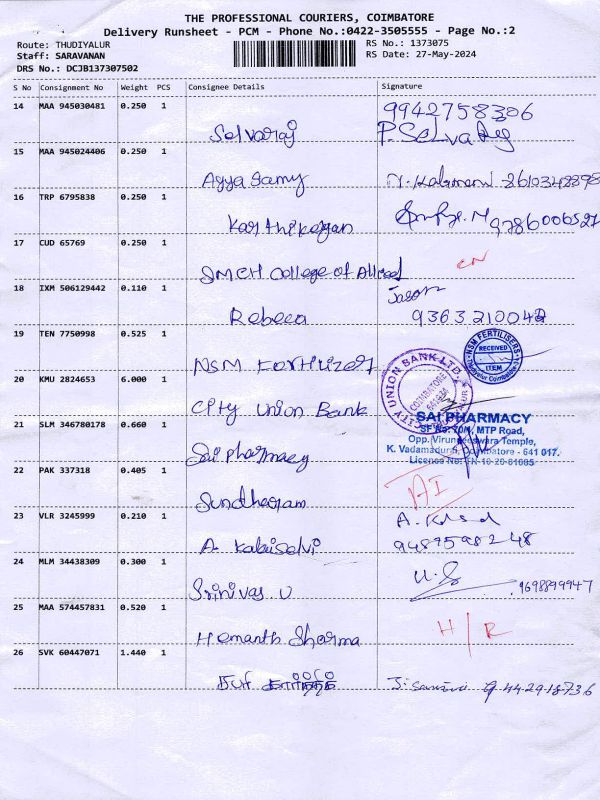 THE PROFESSIONAL COURIERS, COIMBATORE
Delivery Runsheet - PCM - Phone No.:0422-3505555 - Page No.:2
Route: THUDIYALUR
RS No.: 1373075
Staff: SARAVANAN
RS Date: 27-May-2024
DRS No.: DCJB137307502
S No Consignment No Weight PCS Consignee Details Signature
14 MAA 945030481 0.250 1 9942758306
Selvaraj P. Selvaraj
15 MAA 945024406 0.250 1
Ayya Samy
16 TRP 6795838 0.250 1
Karthikeyan 9786006527
17 CUD 65769 0.250 1
SMCH College of Allied
18 IXM 506129442 0.110 1 Jason
Rebeca 9363210042
19 TEN 7750998 0.525 1
NSM Fertilizer
NSM FERTILISERS
RECEIVED
ITEM
20 KMU 2824653 6.000 1
City Union Bank
CITY UNION BANK LTD.
COIMBATORE
21 SLM 346780178 0.660 1
Sai pharmacy
SAI PHARMACY
SF No. 70/1, MTP Road,
Opp. Viruneeswara Temple,
K. Vadamadurai, Coimbatore - 641 017.
22 PAK 337318 0.405 1
Sundharam
23 VLR 3245999 0.210 1
A. Kalaiselvi 9489598248
24 MLM 34438309 0.300 1
Srinivas. U 9698899947
25 MAA 574457831 0.520 1 H/R
Hemanth Sharma
26 SVK 60447071 1.440 1
9442918736